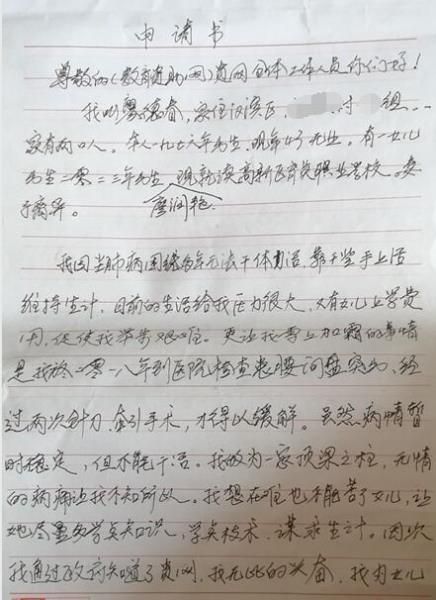 申请书
尊敬的《教育资助网》贵网全体工作人员你们好!
我叫廖德春,家住汉滨区 村 组
家有两口人。本人一九七六年出生,现年4 岁无业。有一女儿
出生二零零三年出生,现就读高新区育英职业学校。妻
子离异。 廖润艳
我因 肺病困绕多年无法干体力活,靠干些手上活
维持生计,目前的生活给我压力很大,又有女儿上学费
用,促使我举步艰难。更让我雪上加霜的事情
是我於二零一八年到医院检查患腰间盘突出,经
过两次针刀、牵引手术,才得以缓解。虽然病情暂
时稳定,但不能干活。我做为一家顶梁之柱,无情
的病痛让我不知所以。我想在难也不能苦了女儿,让
她尽量多学点知识,学点技术,谋求生计。因次
我通过政府知道了贵网,我无比的兴奋,我为女儿